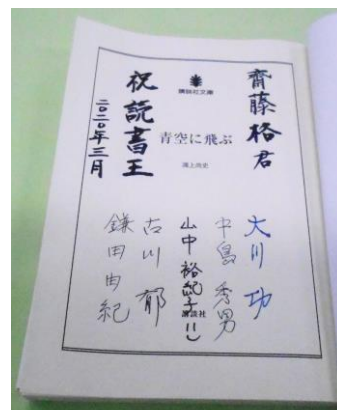 齊藤格君
講談社文庫
青空に飛ぶ
鴻上尚史
祝読書王
二〇二〇年三月
大川功
中島秀男
山中裕記子
講談社
古川郁
鎌田由紀